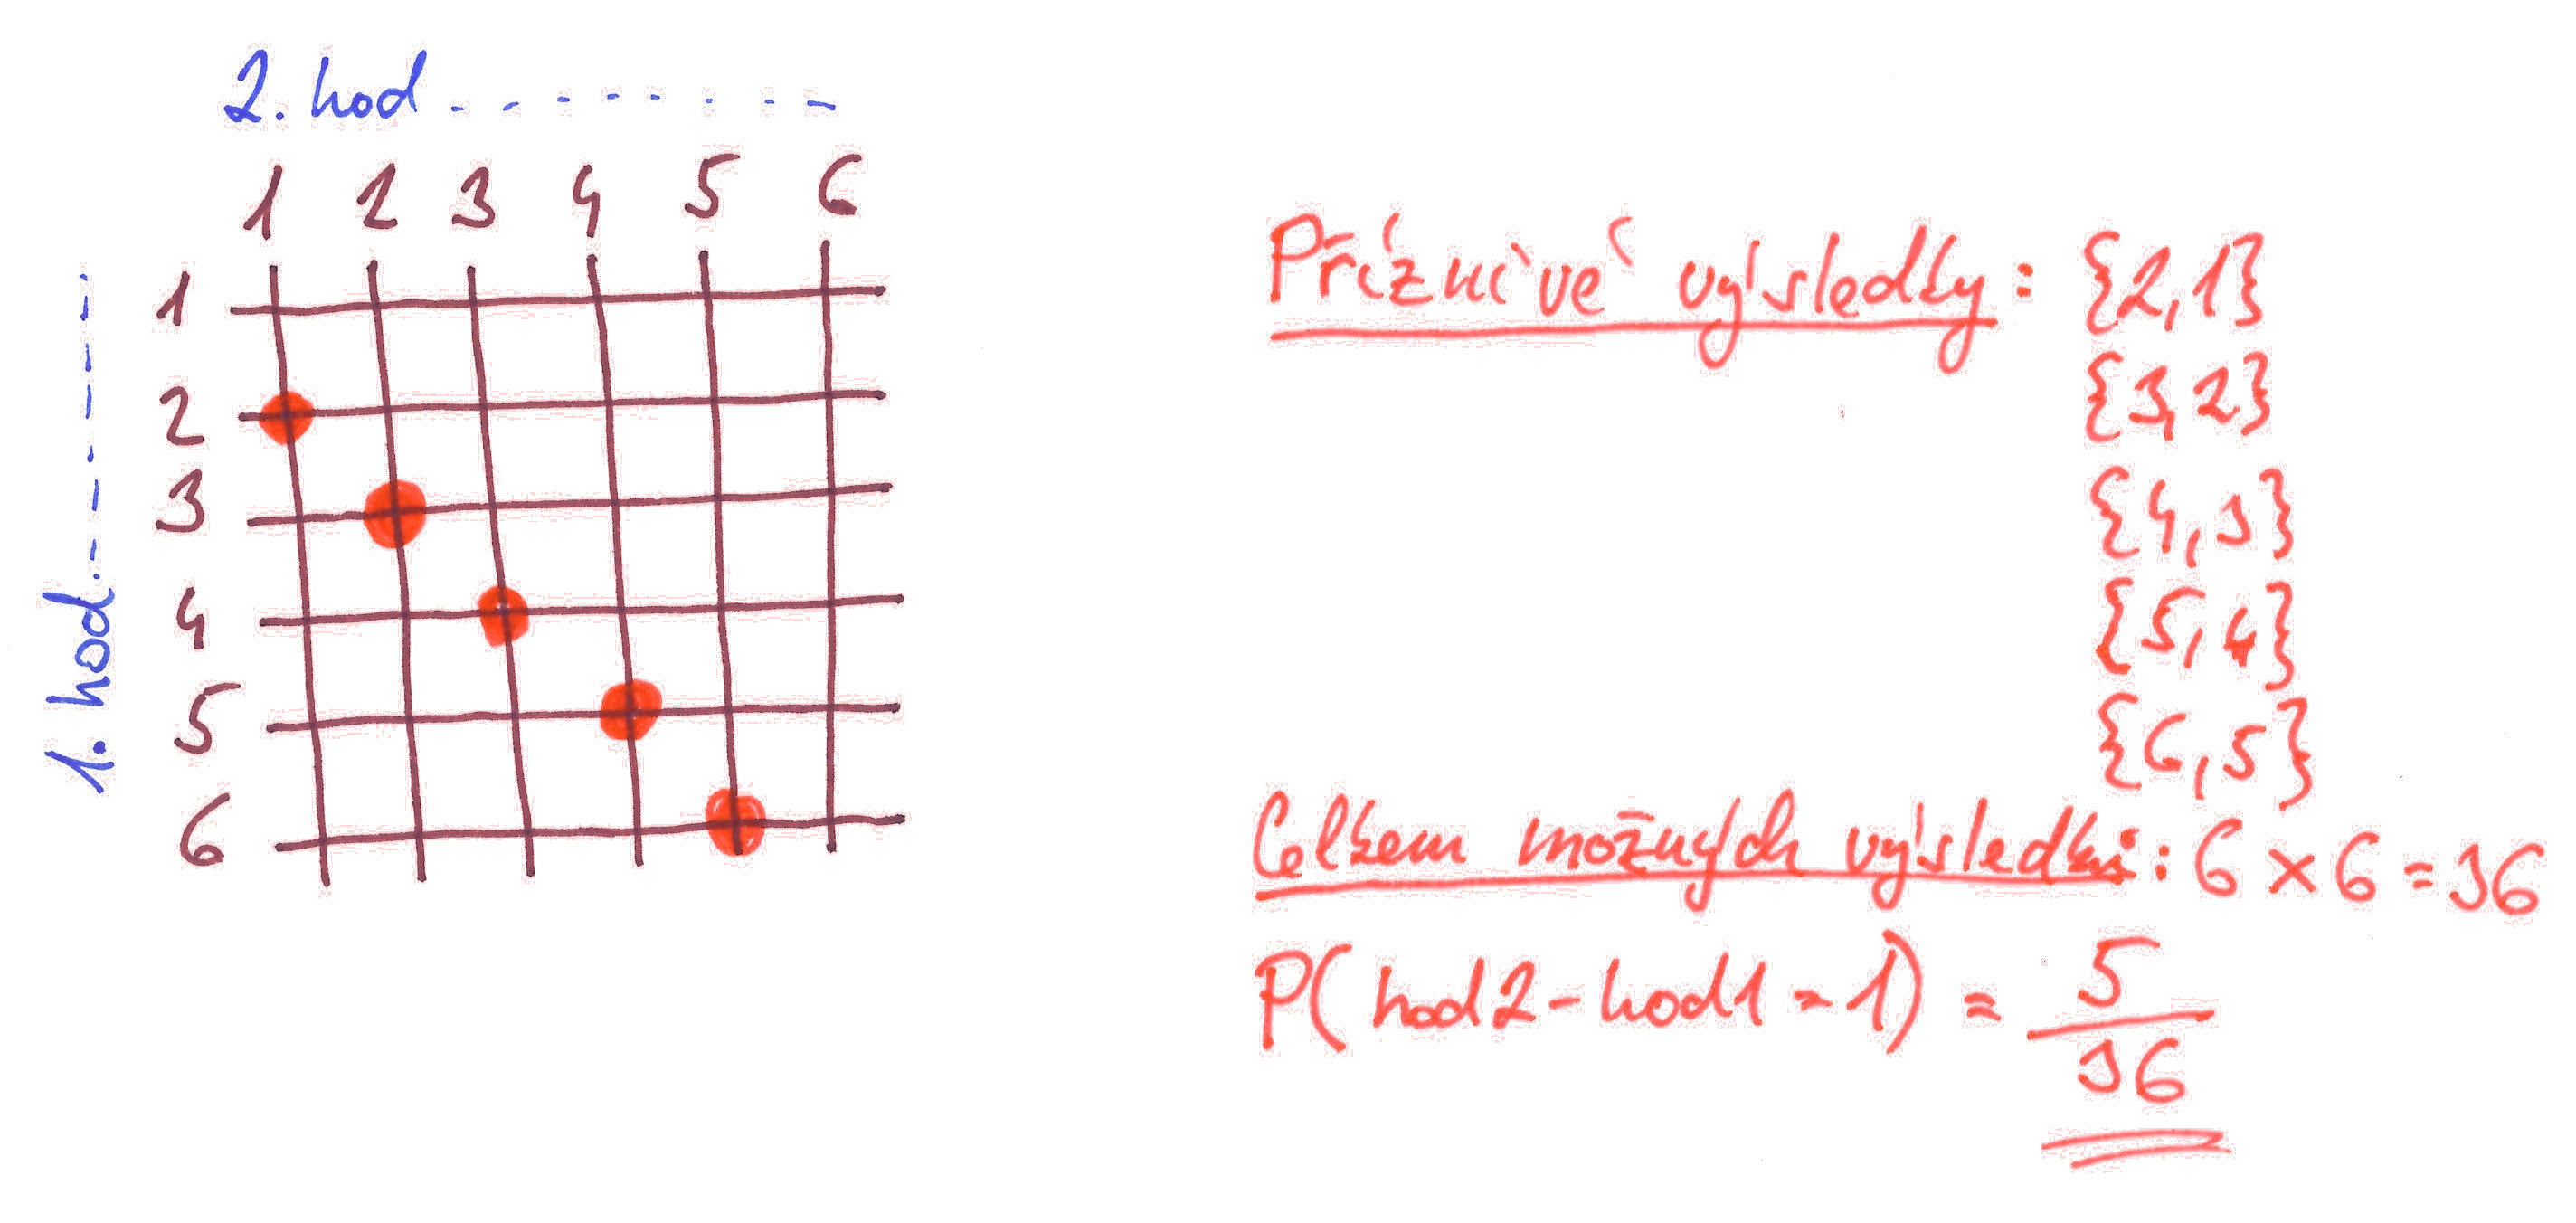 2. hod
1 2 3 4 5 6
1
2
3
4
5
6
1. hod
Příznivé výsledky: {2,1}
{3,2}
{4,3}
{5,4}
{6,5}
Celkem možných výsledků: 6 × 6 = 36
P(hod2 - hod1 = 1) = 5
36